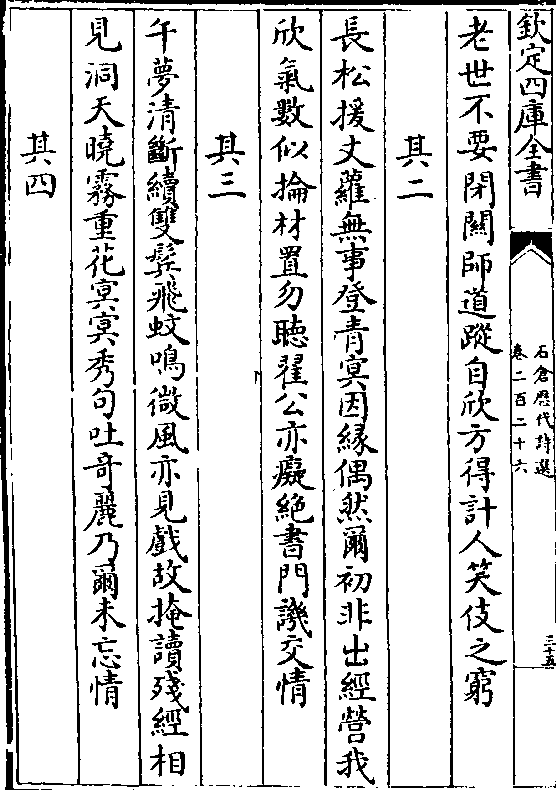 欽定四庫全書
石倉歷代詩選
卷二百二十六
三十五
老世不要閉關師道蹤自欣方得計人笑伎之窮
其二
長松援丈蘿無事登青冥因緣偶然爾初非出經營我
欣氣數似掄材置勿聽翟公亦癡絶書門譏交情
其三
午夢清斷續雙鬂飛蚊鳴微風亦見戲故掩讀殘經相
見洞天曉霧重花冥冥秀句吐竒麗乃爾未忘情
其四